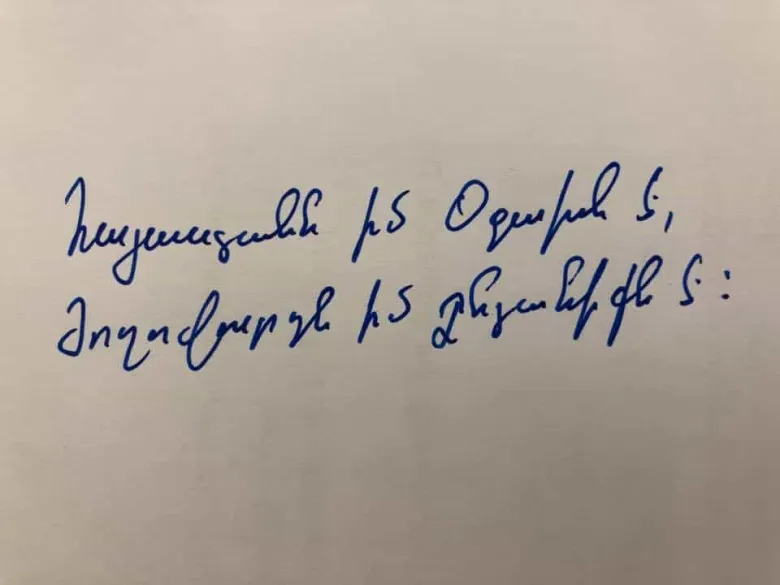 Հայաստանն իմ Օջախն է,
Ժողովուրդն իմ Ընտանիքն է։